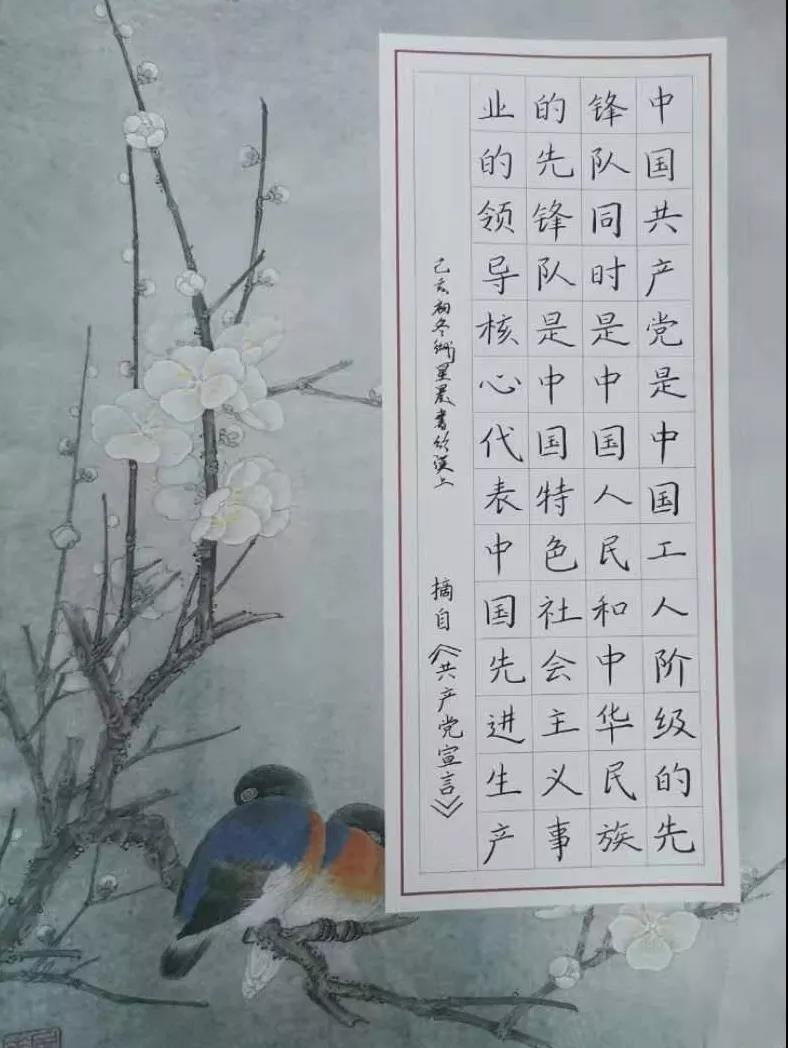 中国共产党是中国工人阶级的先
锋队同时是中国人民和中华民族
的先锋队是中国特色社会主义事
业的领导核心代表中国先进生产
摘自《共产党宣言》
己亥初冬星晨书于汉上